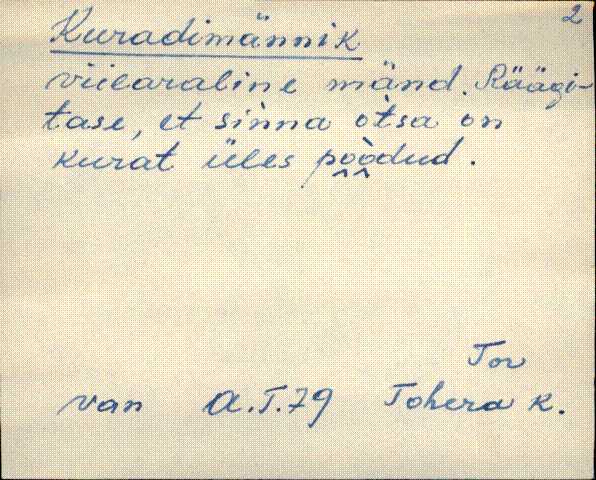 2
Kuradimännik
viiearaline mänd. Räägi-
tase, et sìnna òtsa on
kurat üles pòòdud.
Tor
van A.T.79 Tohera k.